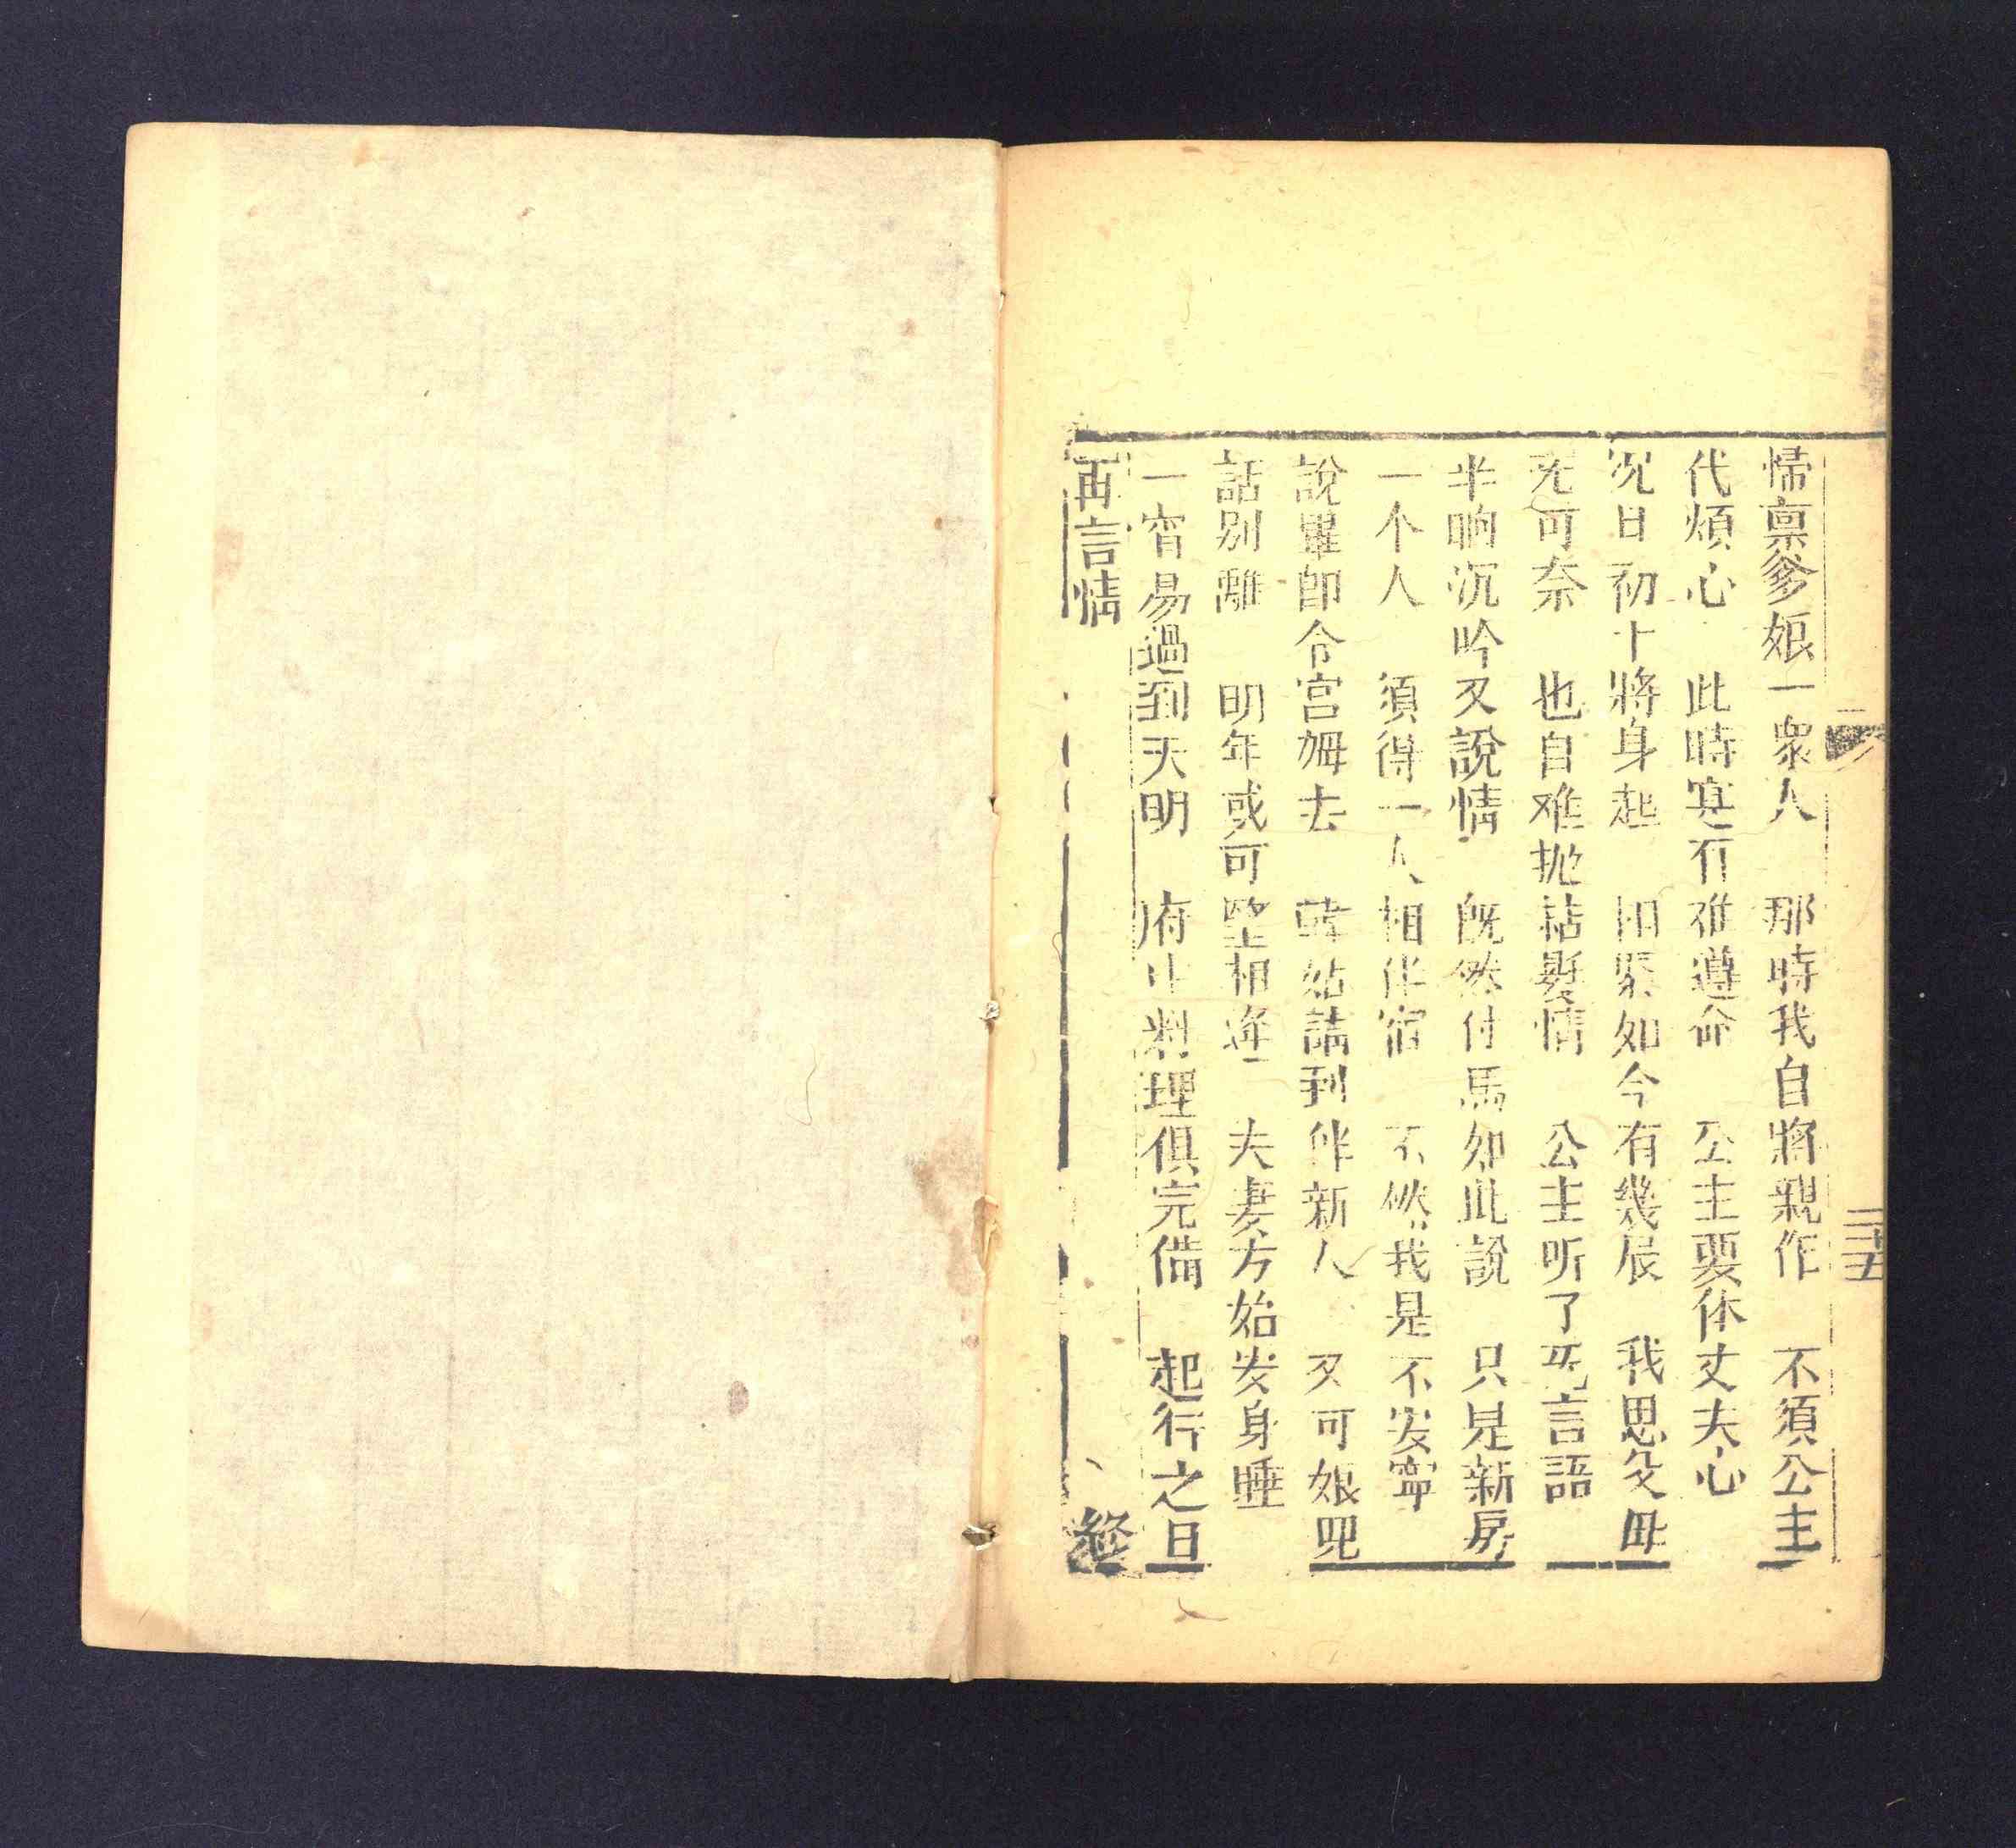 二十五
情稟爹娘一衆人　那時我自將親作　不須公主
代煩心　此時寔有难遵命　公主要休丈夫心
況日初十將身起　相聚如今有幾辰　我思父母
无可奈　也自难抛結髮情　公主听了旡言語
半晌沉吟又說情　既然付馬如此說　只是新房
一个人　須得一人相伴宿　不然我是不安寧
說畢即令宮姆去　韓姑請到伴新人　又可娘兒
話别離　明年或可望相逢　夫妻方始安身睡
一宵易過到天明　府中料理俱完備　起行之日
再言情　終